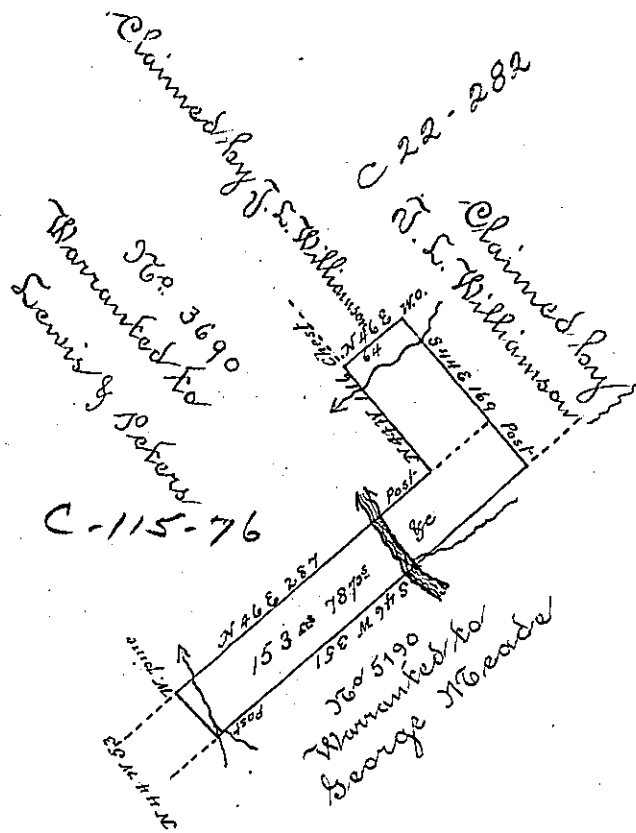 Claimed by
T. L. Williamson
C 22-282
Claimed by
T. L. Williamson
No. 3690
Warranted to
Lewis & Peters
C-115-76
Chest-
N 46 E
64
W.O.
S 44 E 169
Post-
N 44 W 116
Post-
&c
N 46 E 287
153 as 78 ps
S 46 W 351
W. pine
Post
N 44 W 53
No 5190
Warranted to
George Meade